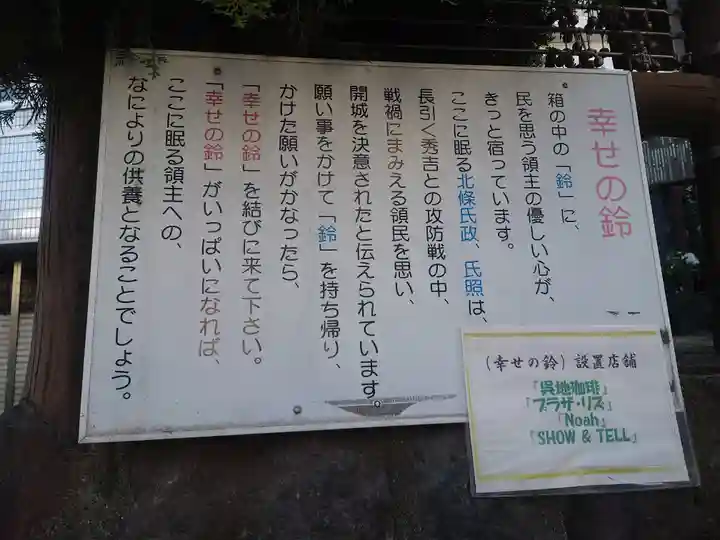 幸せの鈴
箱の中の「鈴」に、
民を思う領主の優しい心が、
きっと宿っています。
ここに眠る北條氏政、氏照は、
長引く秀吉との攻防戦の中、
戦禍にまみえる領民を思い、
開城を決意されたと伝えられています。
願い事をかけて「鈴」を持ち帰り、
かけた願いがかなったら、
「幸せの鈴」を結びに来て下さい。
「幸せの鈴」がいっぱいになれば、
ここに眠る領主への、
なによりの供養となることでしょう。
(幸せの鈴)設置店舗
『呉地珈琲』
『プラザ・リズ』
『Noah』
『SHOW & TELL』